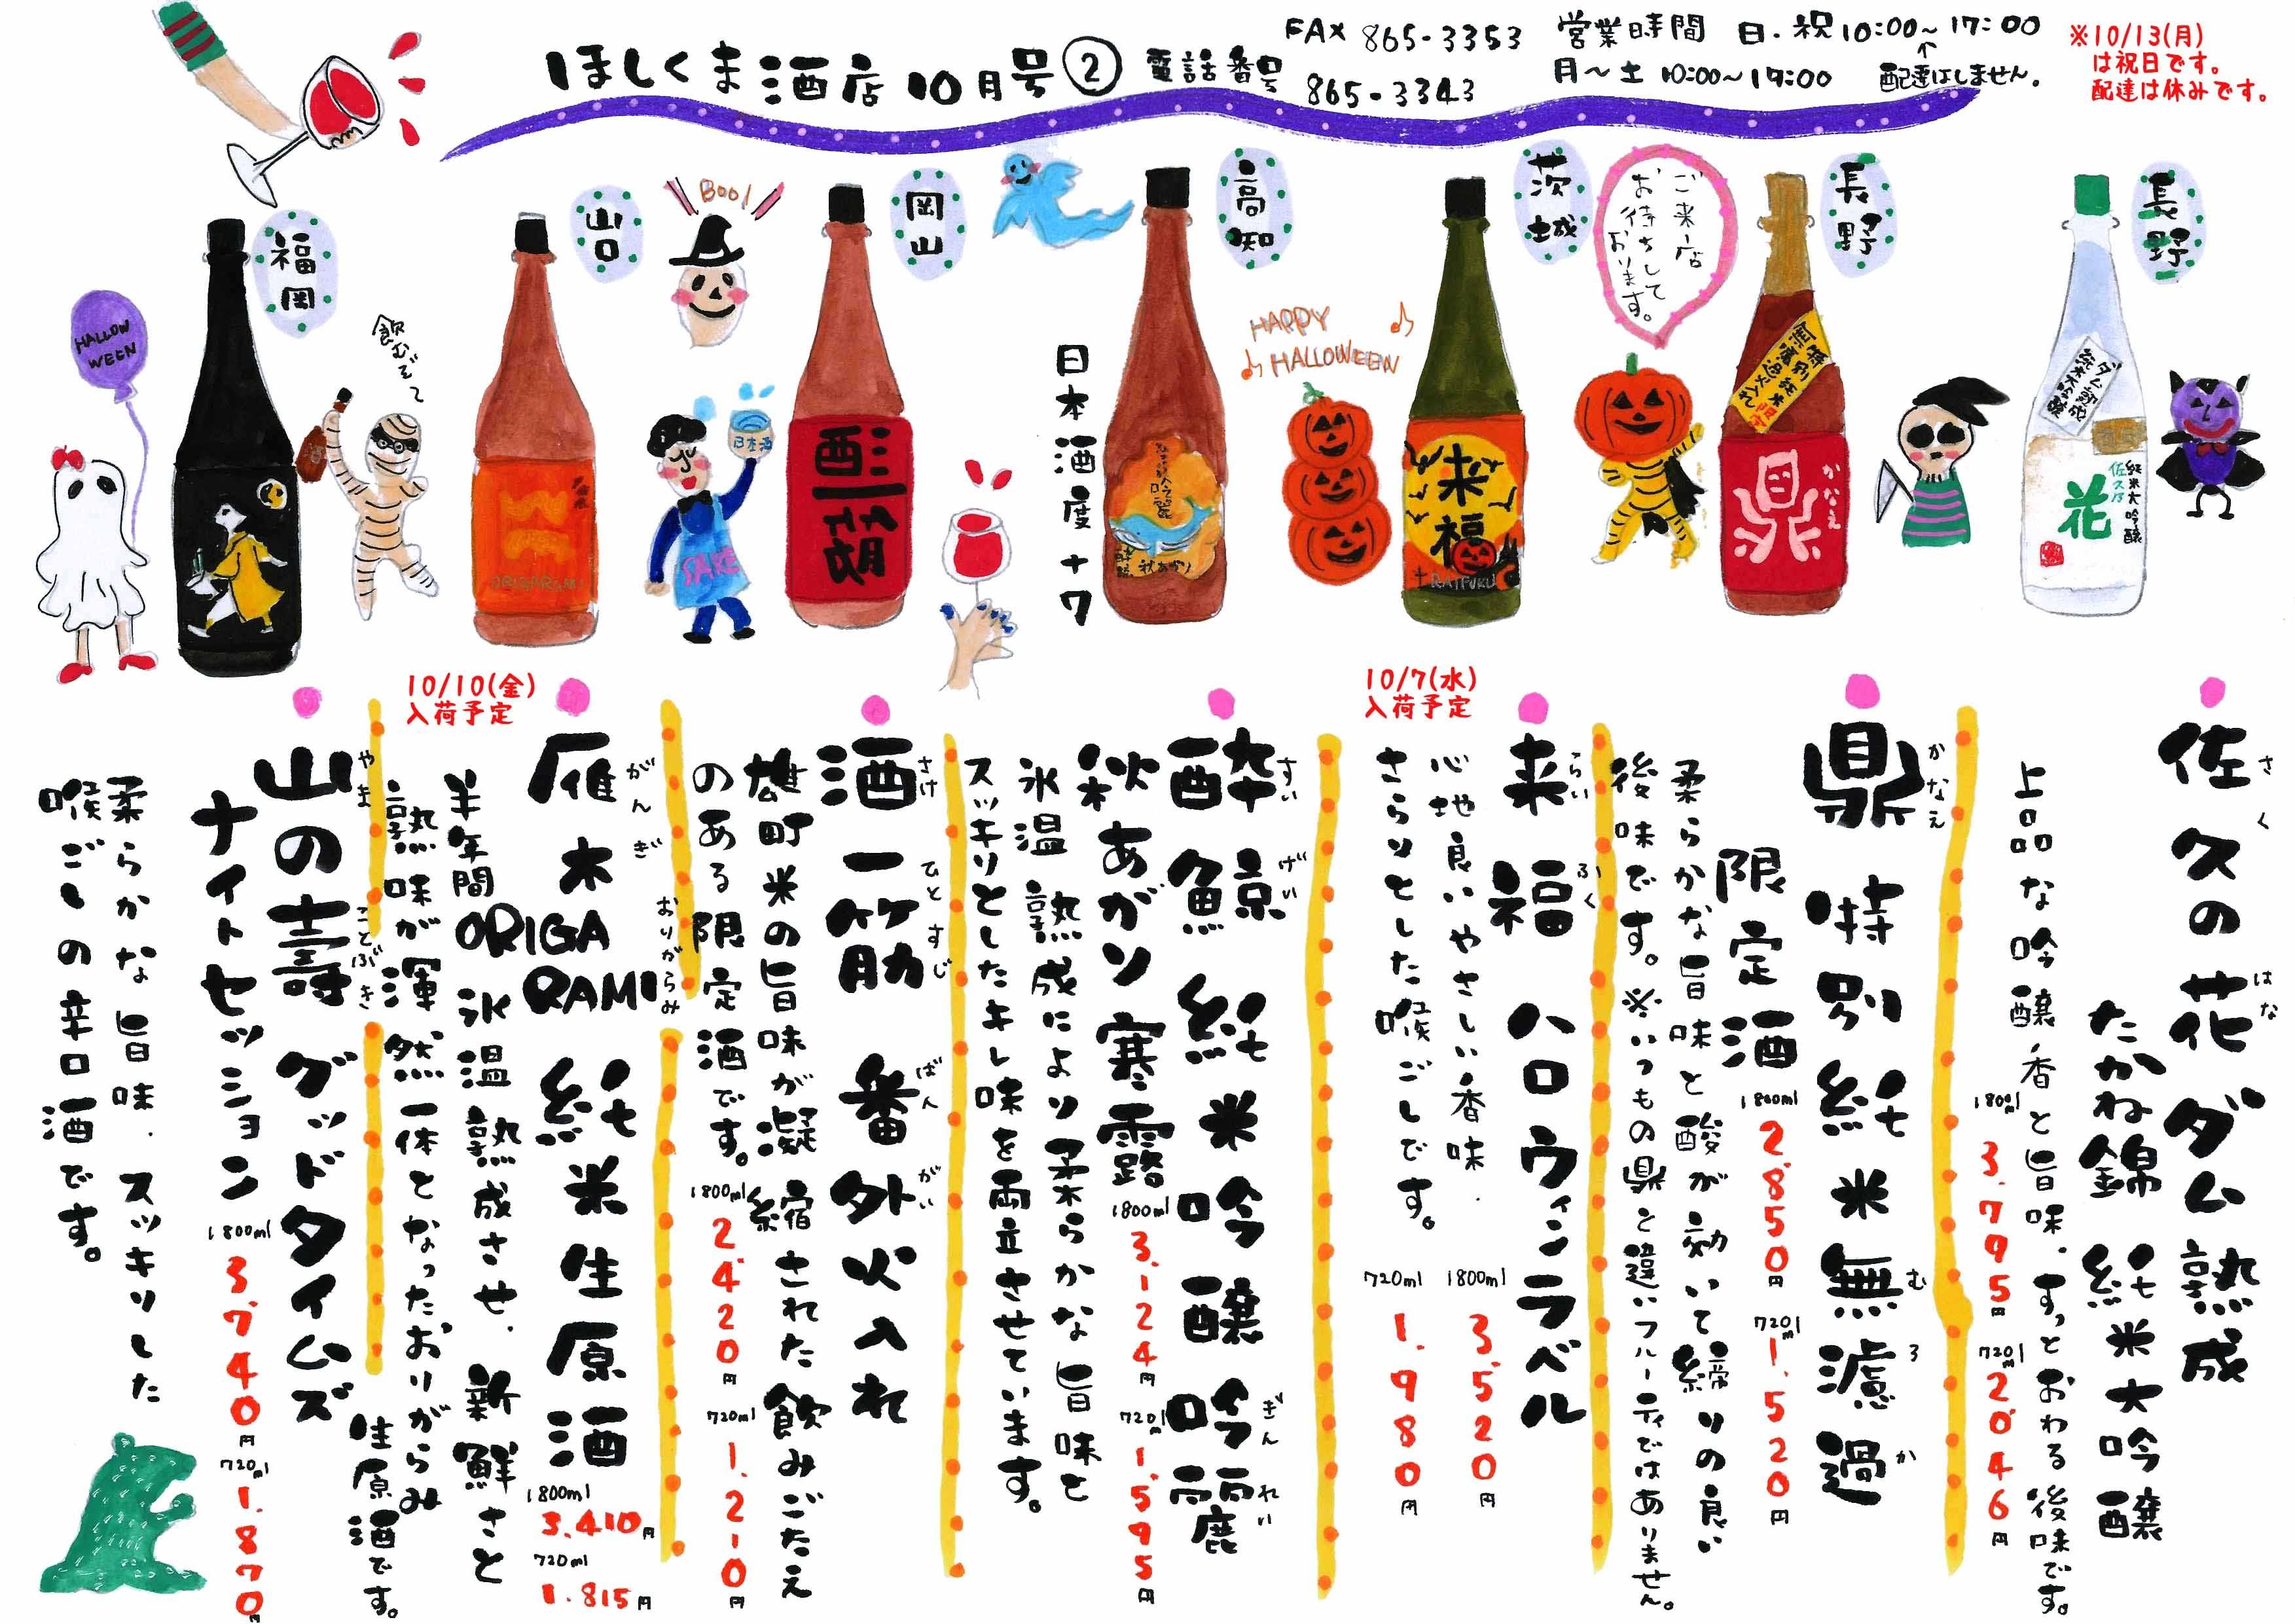 ほしくま酒店 10月号②
電話番号 865-3343
FAX 865-3353
営業時間 日・祝 10:00~17:00
↑配達はしません。
月~土 10:00~19:00
※10/13(月)
は祝日です。
配達は休みです。
長野
長野
ご来店
お待ちして
おります。
茨城
高知
岡山
山口
福岡
Boo!
HAPPY
HALLOWEEN
HALLOW
WEEN
飲むぞ~
日本酒
SAKE
日本酒度+7
純米大吟醸
佐久乃
花
かなえ
鼎
来福
RAIFUKU
秋あがり
酒一筋
ORIGARAMI
佐久の花 ダム熟成
さく はな
たかね錦 純米大吟醸
上品な吟醸香と旨味。すっとおわる後味です。
1800ml 3.795円
720ml 2.046円
鼎 特別純米無濾過
かなえ むろか
限定酒
1800ml 2.850円
720ml 1.520円
柔らかな旨味と酸が効いて締りの良い
後味です。※いつもの鼎と違いフルーティではありません。
10/7(水)
入荷予定
来福 ハロウィンラベル
らいふく
心地良いやさしい香味.
さらりとした喉ごしです。
1800ml 3.520円
720ml 1.980円
酔鯨 純米吟醸 吟麗
すいげい ぎんれい
秋あがり 寒露
1800ml 3.124円
720ml 1.595円
氷温熟成により柔らかな旨味と
スッキリとしたキレ味を両立させています。
酒一筋 番外火入れ
さけひとすじ ばんがい
雄町米の旨味が凝縮された飲みごたえ
のある限定酒です。
1800ml 2.420円
720ml 1.210円
10/10(金)
入荷予定
雁木 純米生原酒
がんぎ
ORIGA
RAMI
おりがらみ
1800ml
3.410円
720ml
1.815円
半年間氷温熟成させ.新鮮さと
熟味が渾然一体となったおりがらみ
生原酒です。
山の壽 グッドタイムズ
やま ことぶき
ナイトセッション
1800ml 3.740円
720ml 1.870円
柔らかな旨味.スッキリした
喉ごしの辛口酒です。